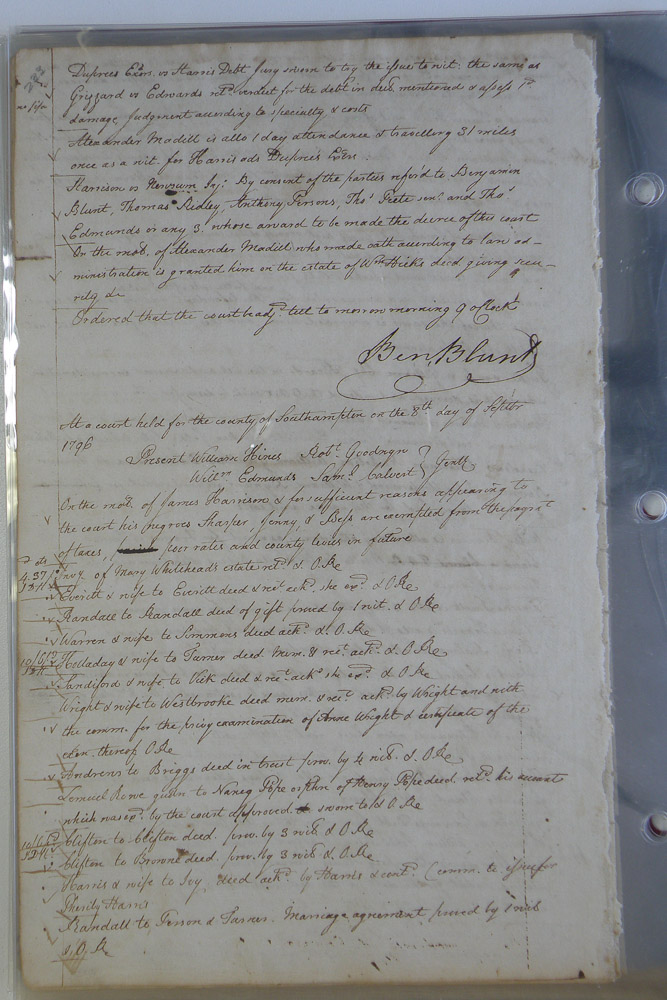 Duprees Exõrs. vs Harris Debt Jury sworn to try the issue to wit. the same as
Grizzard vs Edwards retd. verdict for the debt in decl. mentioned & assess 1d.
damage, judgment according to specialty & costs
Alexander Madill is allo 1 day attendance & travelling 31 miles
once as a wit. for Harris ads Duprees Exõrs.
Harrison vs Newsum Inj: By consent of the parties refer'd to Benjamin
Blunt, Thomas Ridley, Anthony Persons, Thos. Peete senr. and Thos.
Edmunds or any 3. whose award to be made the decree of the court
On the mot. of Alexander Madill who made oath according to law ad-
ministration is granted him on the estate of Wm. Hicks decd giving secu-
rity &c
Ordered that the court be adjd. till to morrow morning 9 oClock
Ben, Blunt
At a court held for the county of Southampton on the 8th day of Septbr
1796
Present William Hines Robt. Goodwyn
Willm Edmunds Saml. Calvert Gentl.
On the mot. of James Harrison & for sufficient reasons appearing to
the court his negroes Sharper, Jenny, & Bess are exempted from the paymt
of taxes, poor rates and county levies in future
Invy. of Mary Whitehead's estate retd. & O.Re
Everitt & wife to Everitt deed & rect. ackd. she exd. & O Re
Randall to Randall deed of gift proved by 1 wit. & O Re
Warren & wife to Simmons deed ackd. & O Re
Holladay & wife to Turner deed mem. & rect. ackd. & O Re
Sandiford & wife to Vick deed & rect. ackd. she exd. & O Re
Wright & wife to Westbrooke deed mem. & rect. ackd. by Wright and with
the comm. for the privy examination of Anne Wright & certificate of the
exon. thereof O Re
Andrews to Briggs deed in trust prov. by 4 wits. & O Re
Lemuel Rowe guãn to Nancy Pope orphn of Henry Pope decd. retd. his account
which was exd. by the court approved sworn to & O Re
Clifton to Clifton deed. prov. by 3 wits & O Re
Clifton to Browne deed. prov. by 3 wits & O Re
Harris & wife to Ivy, deed ackd. by Harris & contd. (comm. to issue for
Pherity Harris
Randall to Person & Turner. Marriage agreement proved by 1 wit
& O Re